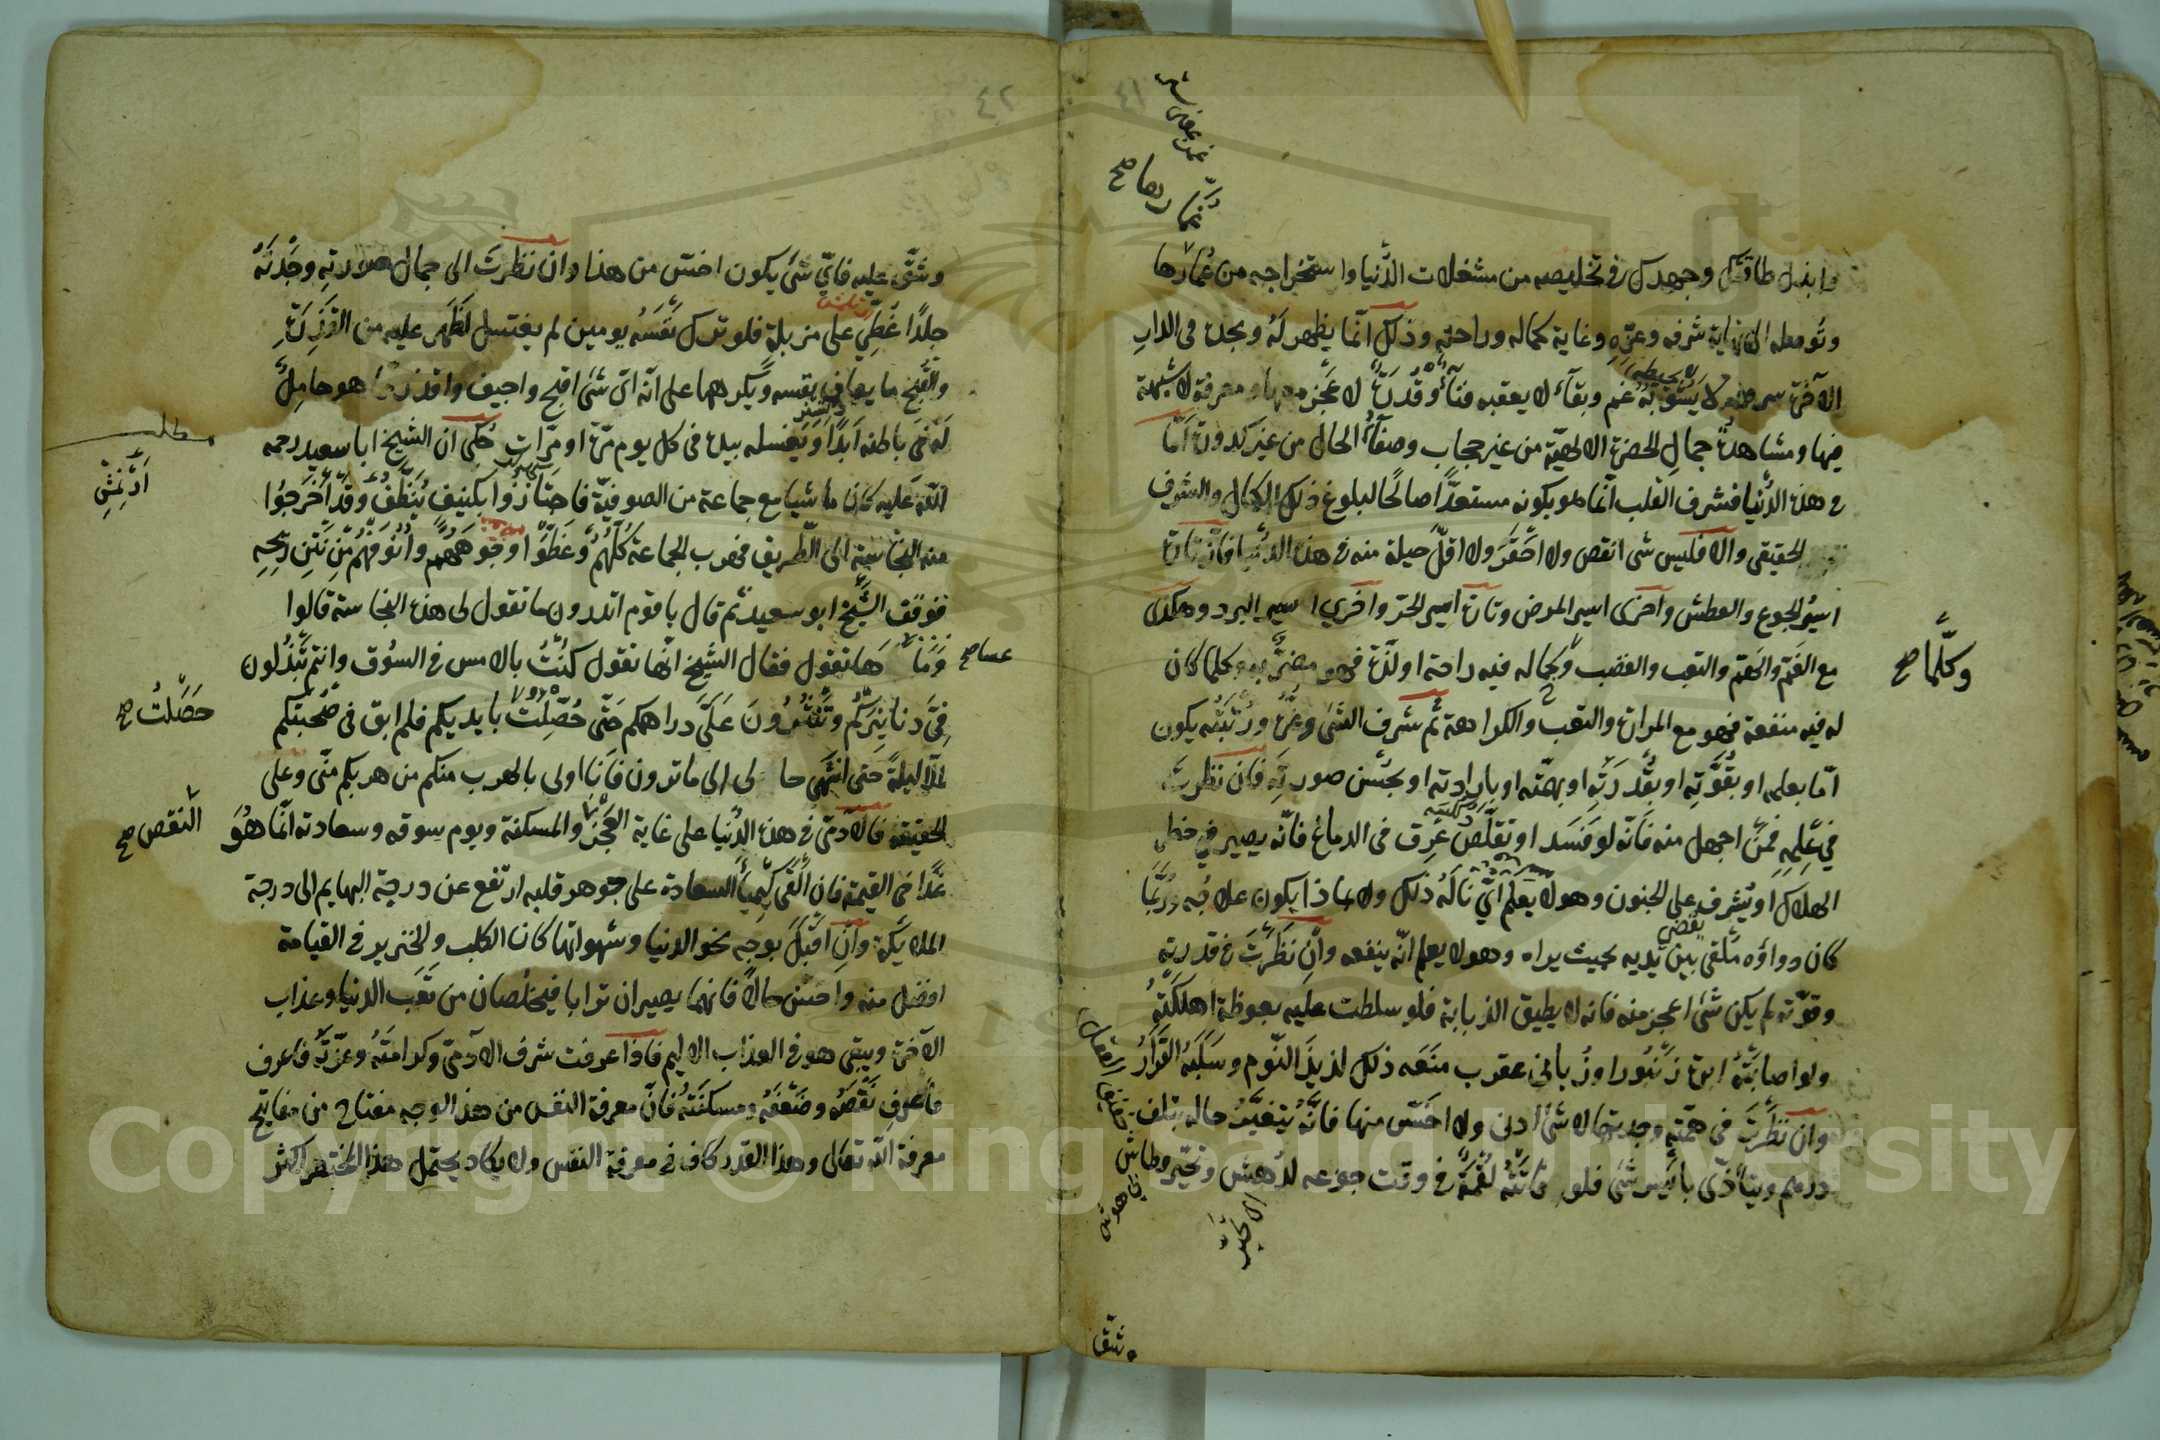 ٤١
وابذل طاقتك وجهدك في تخليصه من مشغلات الدنيا واستخراجه من غمارها
وتومعله الى نهاية شرفه وعزه وغاية كماله وراحته وذلك انما يظهر له ويجده في الدار
الآخرة سرور لا يشوبه غم وبقاء لا يعقبه فناء وقدرة لا عجز معها ومعرفة لا شبهة
فيها ومشاهدة جمال الحضرة الالهية من غير حجاب وصفاء الحال من غير كدورة اما
في هذه الدنيا فشرف القلب انما هو بكونه مستعدا صالحا لبلوغ ذلك الكمال والشرف
الحقيقي والا فليس شئ انقص ولا احقر ولا اقل حيلة منه في هذه الدنيا فانه تارة
اسير الجوع والعطش واخرى اسير المرض وتارة اسير الحر واخرى اسير البرد وهكذى
مع الغم والهم والتعب والغضب وكماله فيه راحة او لذة فهو مضر به وكلما كان
له فيه منفعة فهو مع المرارة والتعب والكراهة ثم شرف الشئ وعزه ورتبته يكون
اما بعلمه او بقوته او بقدرته او بهمته او بارادته او بحسن صورته فان نظرت
في علمه فمن اجهل منه فانه لو فسد او تقلص عرق في الدماغ فانه يصير في خطر
الهلاك او يشرف على الجنون وهو لا يعلم اي ناله ذلك ولا بماذا يكون علاجه وربما
كان دواؤه ملقى بين يديه بحيث يراه وهو لا يعلم انه ينفعه وان نظرت في قدرته
وقوته لم يكن شئ اعجز منه فانه لا يطيق الذبابة فلو سلطت عليه بعوظة اهلكته
ولو اصابته ابرة زنبور او زباني عقرب منعه ذلك لذيذ النوم وسلبه القرار
وان نظرت في همته وجدتها لا شئ ادنى ولا اخس منها فانه يتغير حاله بتلف
درهم ويتأذى بايسر شئ فلو فاتته لقمة في وقت جوعه لدهش وتحير وطاش
وكلما صح
وشق
٤٢
وشق عليه فاي شئ يكون اخس من هذا وان نظرت الى جمال صورته وجدته
جلدا غطي على مزبلة فلو ترك نفسه يومين لم يغتسل لظهر عليه من القذرة
والقبح ما يعاف بنفسه ويكرهها على انه اي شئ اقبح واجيف واقذر مما هو حامل
له في باطنه ابدا ويغسله بيده في كل يوم مرة او مرات حكى ان الشيخ ابا سعيد رحمه
الله عليه كان ماشيا مع جماعة من الصوفية فاجتازوا بكنيف ينظف وقد اخرجوا
منه النجاسة الى الطريق فهرب الجماعة كلهم وغطوا وجوههم وانوفهم من نتن ريحه
فوقف الشيخ ابو سعيد ثم قال يا قوم اتدرون ما تقول لي هذه النجاسة قالوا
وما عساها تقول فقال الشيخ انها تقول كنت بالامس في السوق وانتم تبذلون
في دنانيركم وتنثرون علي دراهمكم حتى حصلت بايديكم فلم ابق في صحبتكم
الا ليلة حتى انتهى حالي الى ما ترون فانا اولى بالهرب منكم من هربكم مني وعلى
الحقيقة فالآدمي في هذه الدنيا على غاية العجز والمسكنة ويوم سوقه وسعادته انما هو
غدا في القيمة فان القى كيمياء السعادة على جوهر قلبه ارتفع عن درجة البهايم الى درجة
الملائكة وان اقبل بوجه نحو الدنيا وشهواتها كان الكلب والخنزير في القيامة
افضل منه واحسن حالا فانهما يصيران ترابا فيخلصان من تعب الدنيا وعذاب
الآخرة ويبقى هو في العذاب الاليم فاذا عرفت شرف الآدمي وكرامته وعزته فاعرف
نقصه وضعفه ومسكنته فان معرفة النفس من هذا الوجه مفتاح من مفاتيح
معرفة الله تعالى وهذا القدر كاف في معرفة النفس ولا يكاد يحتمل هذا المختصر اكثر
مطلب
عسا صح
حصلت صح
النقص صح
Copyright © King Saud University